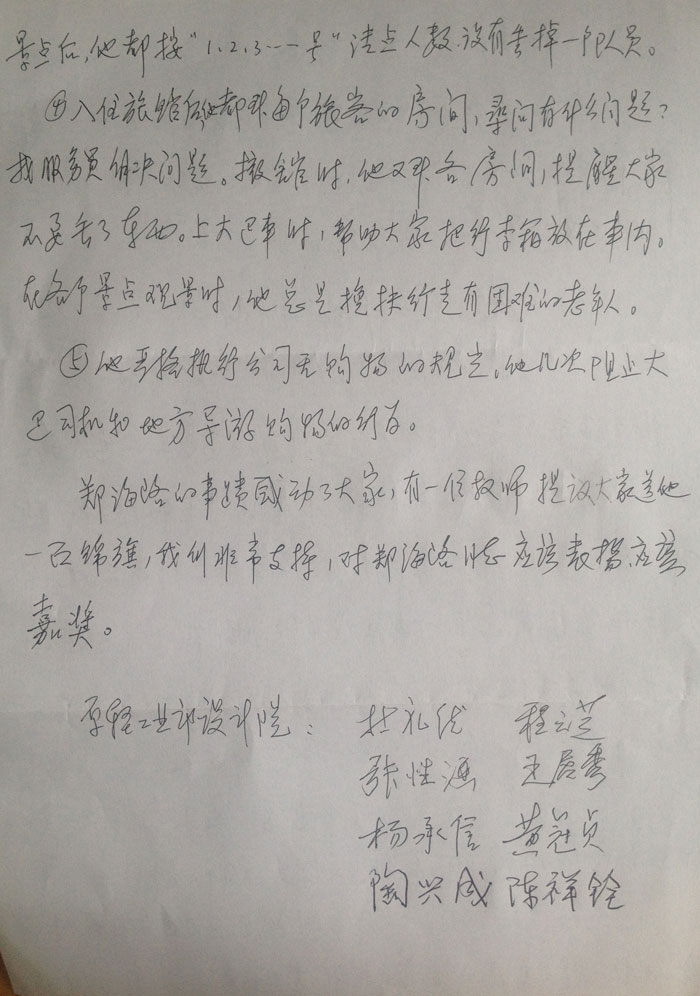 景点后,他都按“1.2.3……号”清点人数.没有丢掉一队人员。
④入住旅馆后他都到每个旅客的房间,寻问有什么问题?
找服务员解决问题。撤馆时,他又到各房间,提醒大家
不要丢了东西。上大巴车时,帮助大家把行李箱放在车内。
在各个景点观景时,他总是搀扶行走有困难的老年人。
⑤他严格执行公司无购物的规定。他几次阻止大
巴司机和地方导游购物的行为。
郑海洛的事蹟感动了大家,有一位教师提议大家送他
一面锦旗,我们非常支持,对郑海洛同志应该表揚.应该
嘉奖。
原轻工业部设计院: 杜礼优 程云芝
张性涵 王居秀
杨承信 黄冠贞
陶兴成 陈祥铨